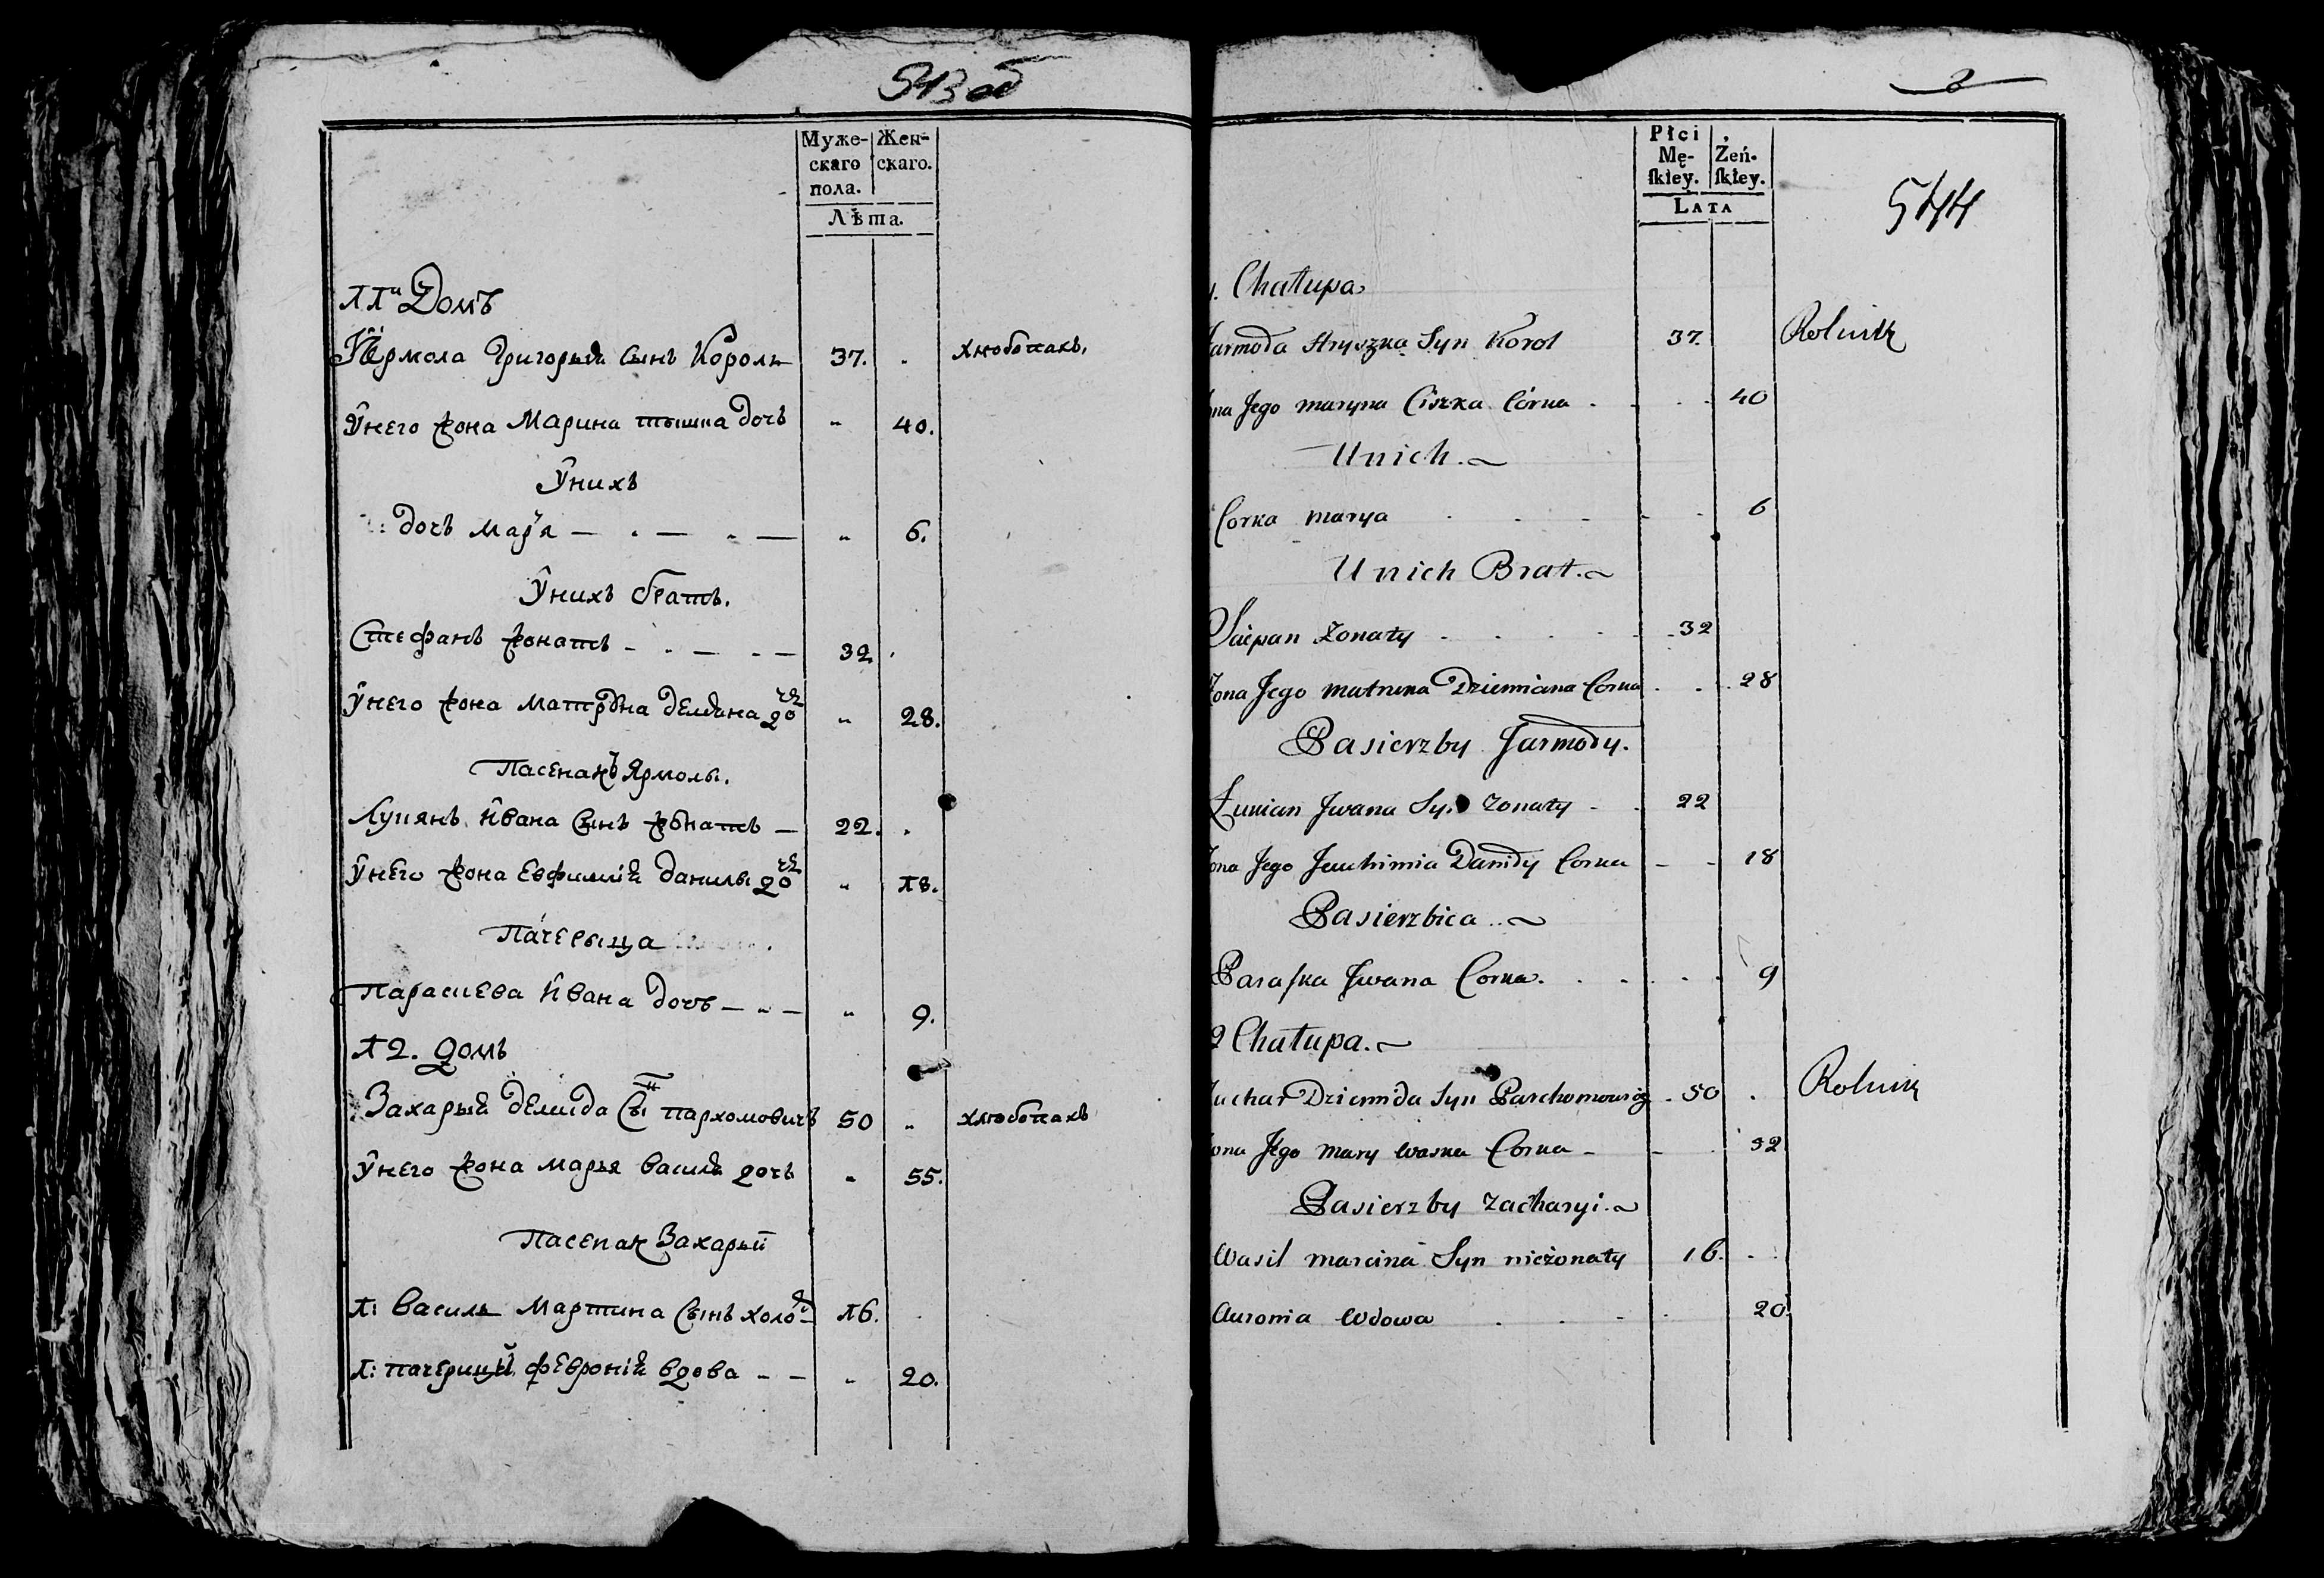 543 об
Муже- Жен-
скаго скаго.
пола.
Лѣта.
11й Домъ
Ермола Григорый сынъ Король 37. хлѣбопахъ.
Ўнего жона Марина тышка дочь " 40.
Ўнихъ
дочь Марія — . — . — " 6.
Ўнихъ братъ.
Стефанъ жонатъ - . — . — 32
Ўнего жона Матрона демяна доч " 28.
Пасенакъ Ярмолы.
Лукянъ Ивана сынъ жонатъ — 22.
Ўнего жона Евфимий данилы доч " 18.
Пачерыца
Параскева Ивана дочь — " — " 9.
12. домъ
Захарый демида Сын пархомовичъ 50 " хлѣбопахъ
Ўнего жона марья василя дочь " 55.
Пасенак Захарый
1: Василь Мартина Сынъ холо 16.
1: пачерицы февроний вдова - — " 20.
2
Płci Żeń-
Mę- skiey.
skiey.
LATA
544
. Chałupa
Jarmoła Hryszka Syn Korol 37. Rolnik
ona Jego maryna Ciszka Córka . 40
Unich.~
Corka marya 6
Unich Brat.~
Sciepan Zonaty 32
Zona Jego matruna Dziemiana Corka 28
Pasierzby Jarmoły.
Łukian Jwana Syn zonaty 22
ona Jego Jeuchimia Daniły Corka 18
Pasierzbica ..~
Paraska Jwana Corka. 9
2 Chałupa.~
achar Dziemida Syn Parchomowicz 50 Rolnik
ona Jego mary waska Corka 52
Pasierzby zacharyi.~
Wasil marcina Syn nieżonaty 16.
Auronia Wdowa 20.